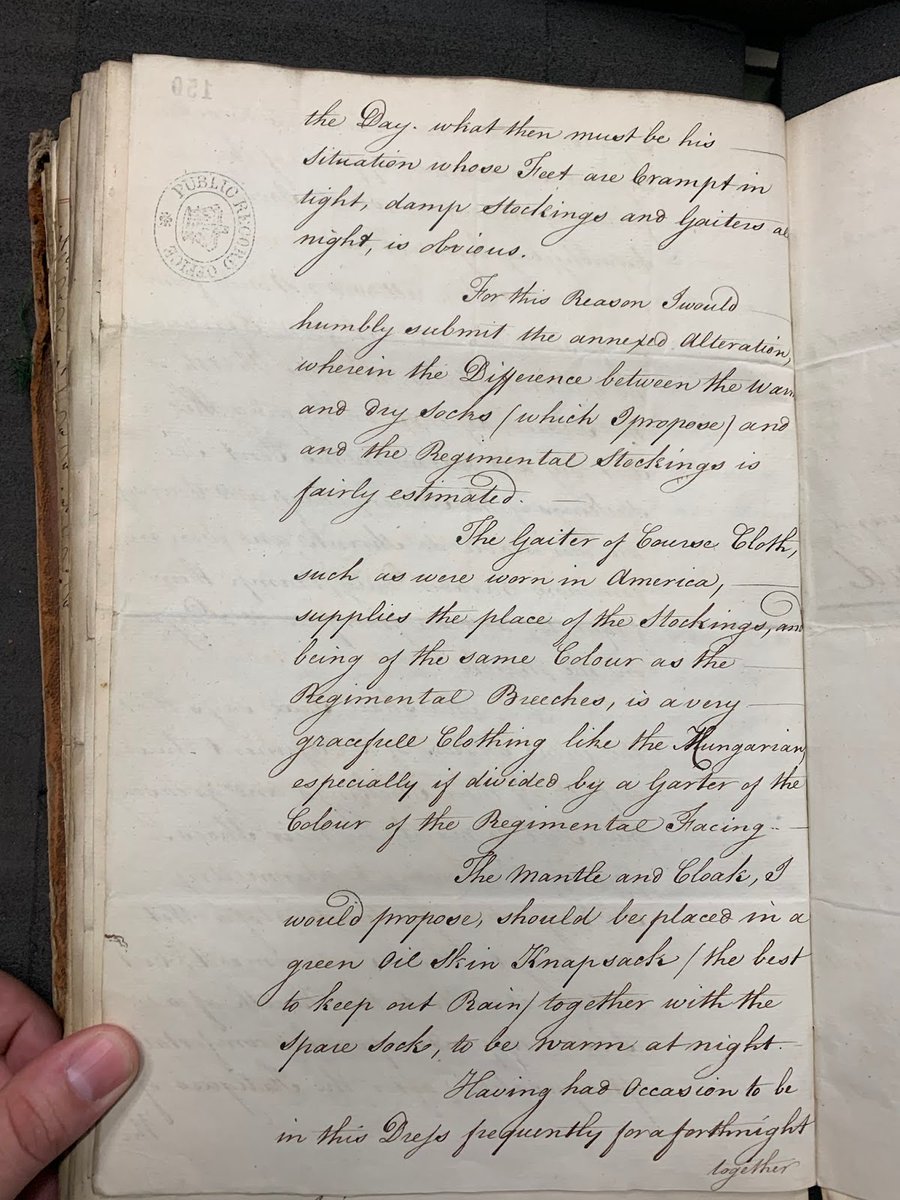 150
PUBLIC RECORD OFFICE
the Day. what then must be his
situation whose Feet are Crampt in
tight, damp Stockings and Gaiters a
night, is obvious.
For this Reason I would
humbly submit the annexed Alteration,
wherein the Difference between the War
and dry Socks (which I propose) and
and the Regimental Stockings is
fairly estimated.
The Gaiter of Course Cloth,
such as were worn in America,
supplies the place of the Stockings, an
being of the same Colour as the
Regimental Breeches, is a very
gracefull Clothing like the Hungarian,
especially if divided by a Garter of the
Colour of the Regimental Facing.
The Mantle and Cloak, I
would propose, should be placed in a
green Oil Skin Knapsack (the best
to keep out Rain) together with the
Spare Sock, to be Warm at night.
Having had Occasion to be
in this Dress frequently for a forthnight
together